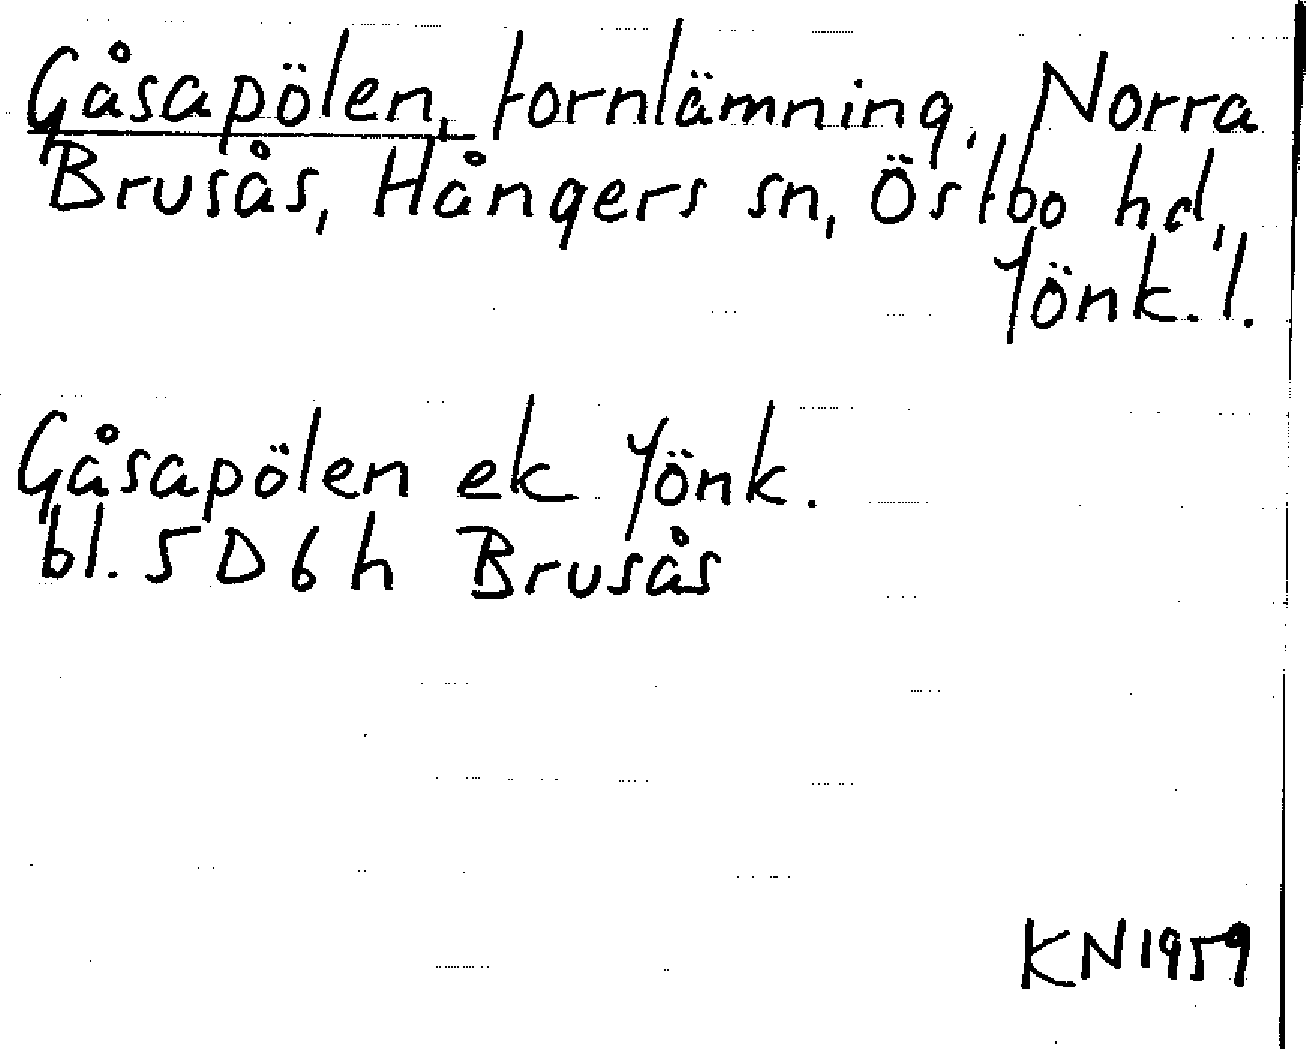 Gåsapölen, fornlämning, Norra
Brusås, Hångers sn, Östbo hd,
Jönk. l.
Gåsapölen ek Jönk.
bl. 5D6h Brusås
KN1959